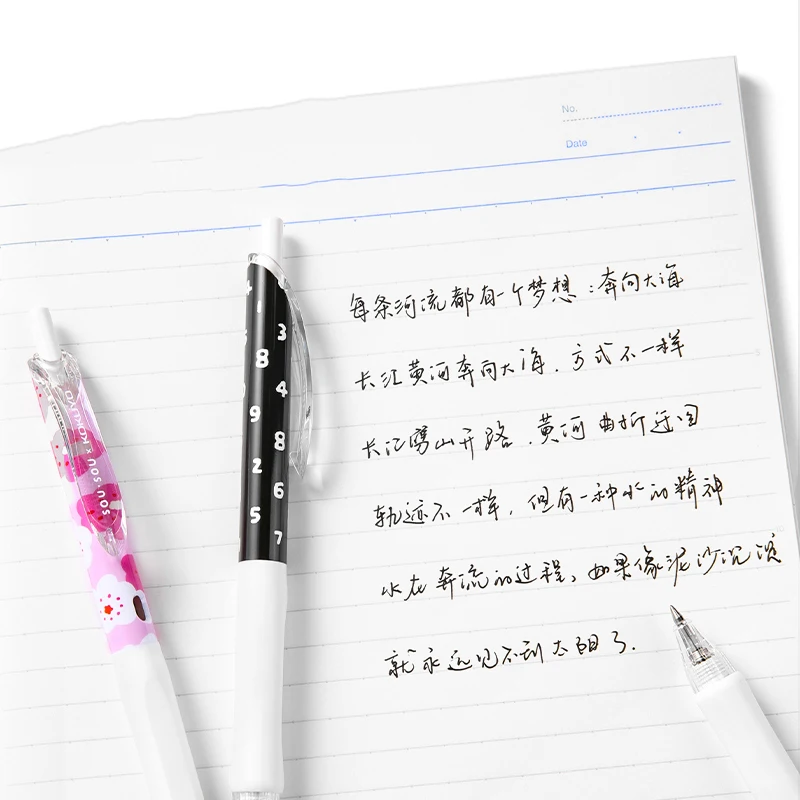 No.
Date
每条河流都有一个梦想:奔向大海
长江黄河奔向大海.方式不一样
长江劈山开路.黄河曲折迂回
轨迹不一样,但有一种水的精神
水在奔流的过程,如果像泥沙沉淀
就永远见不到太阳了.
1
3
8
4
9
8
2
6
5
7
SOU·SOU × KOKUYO